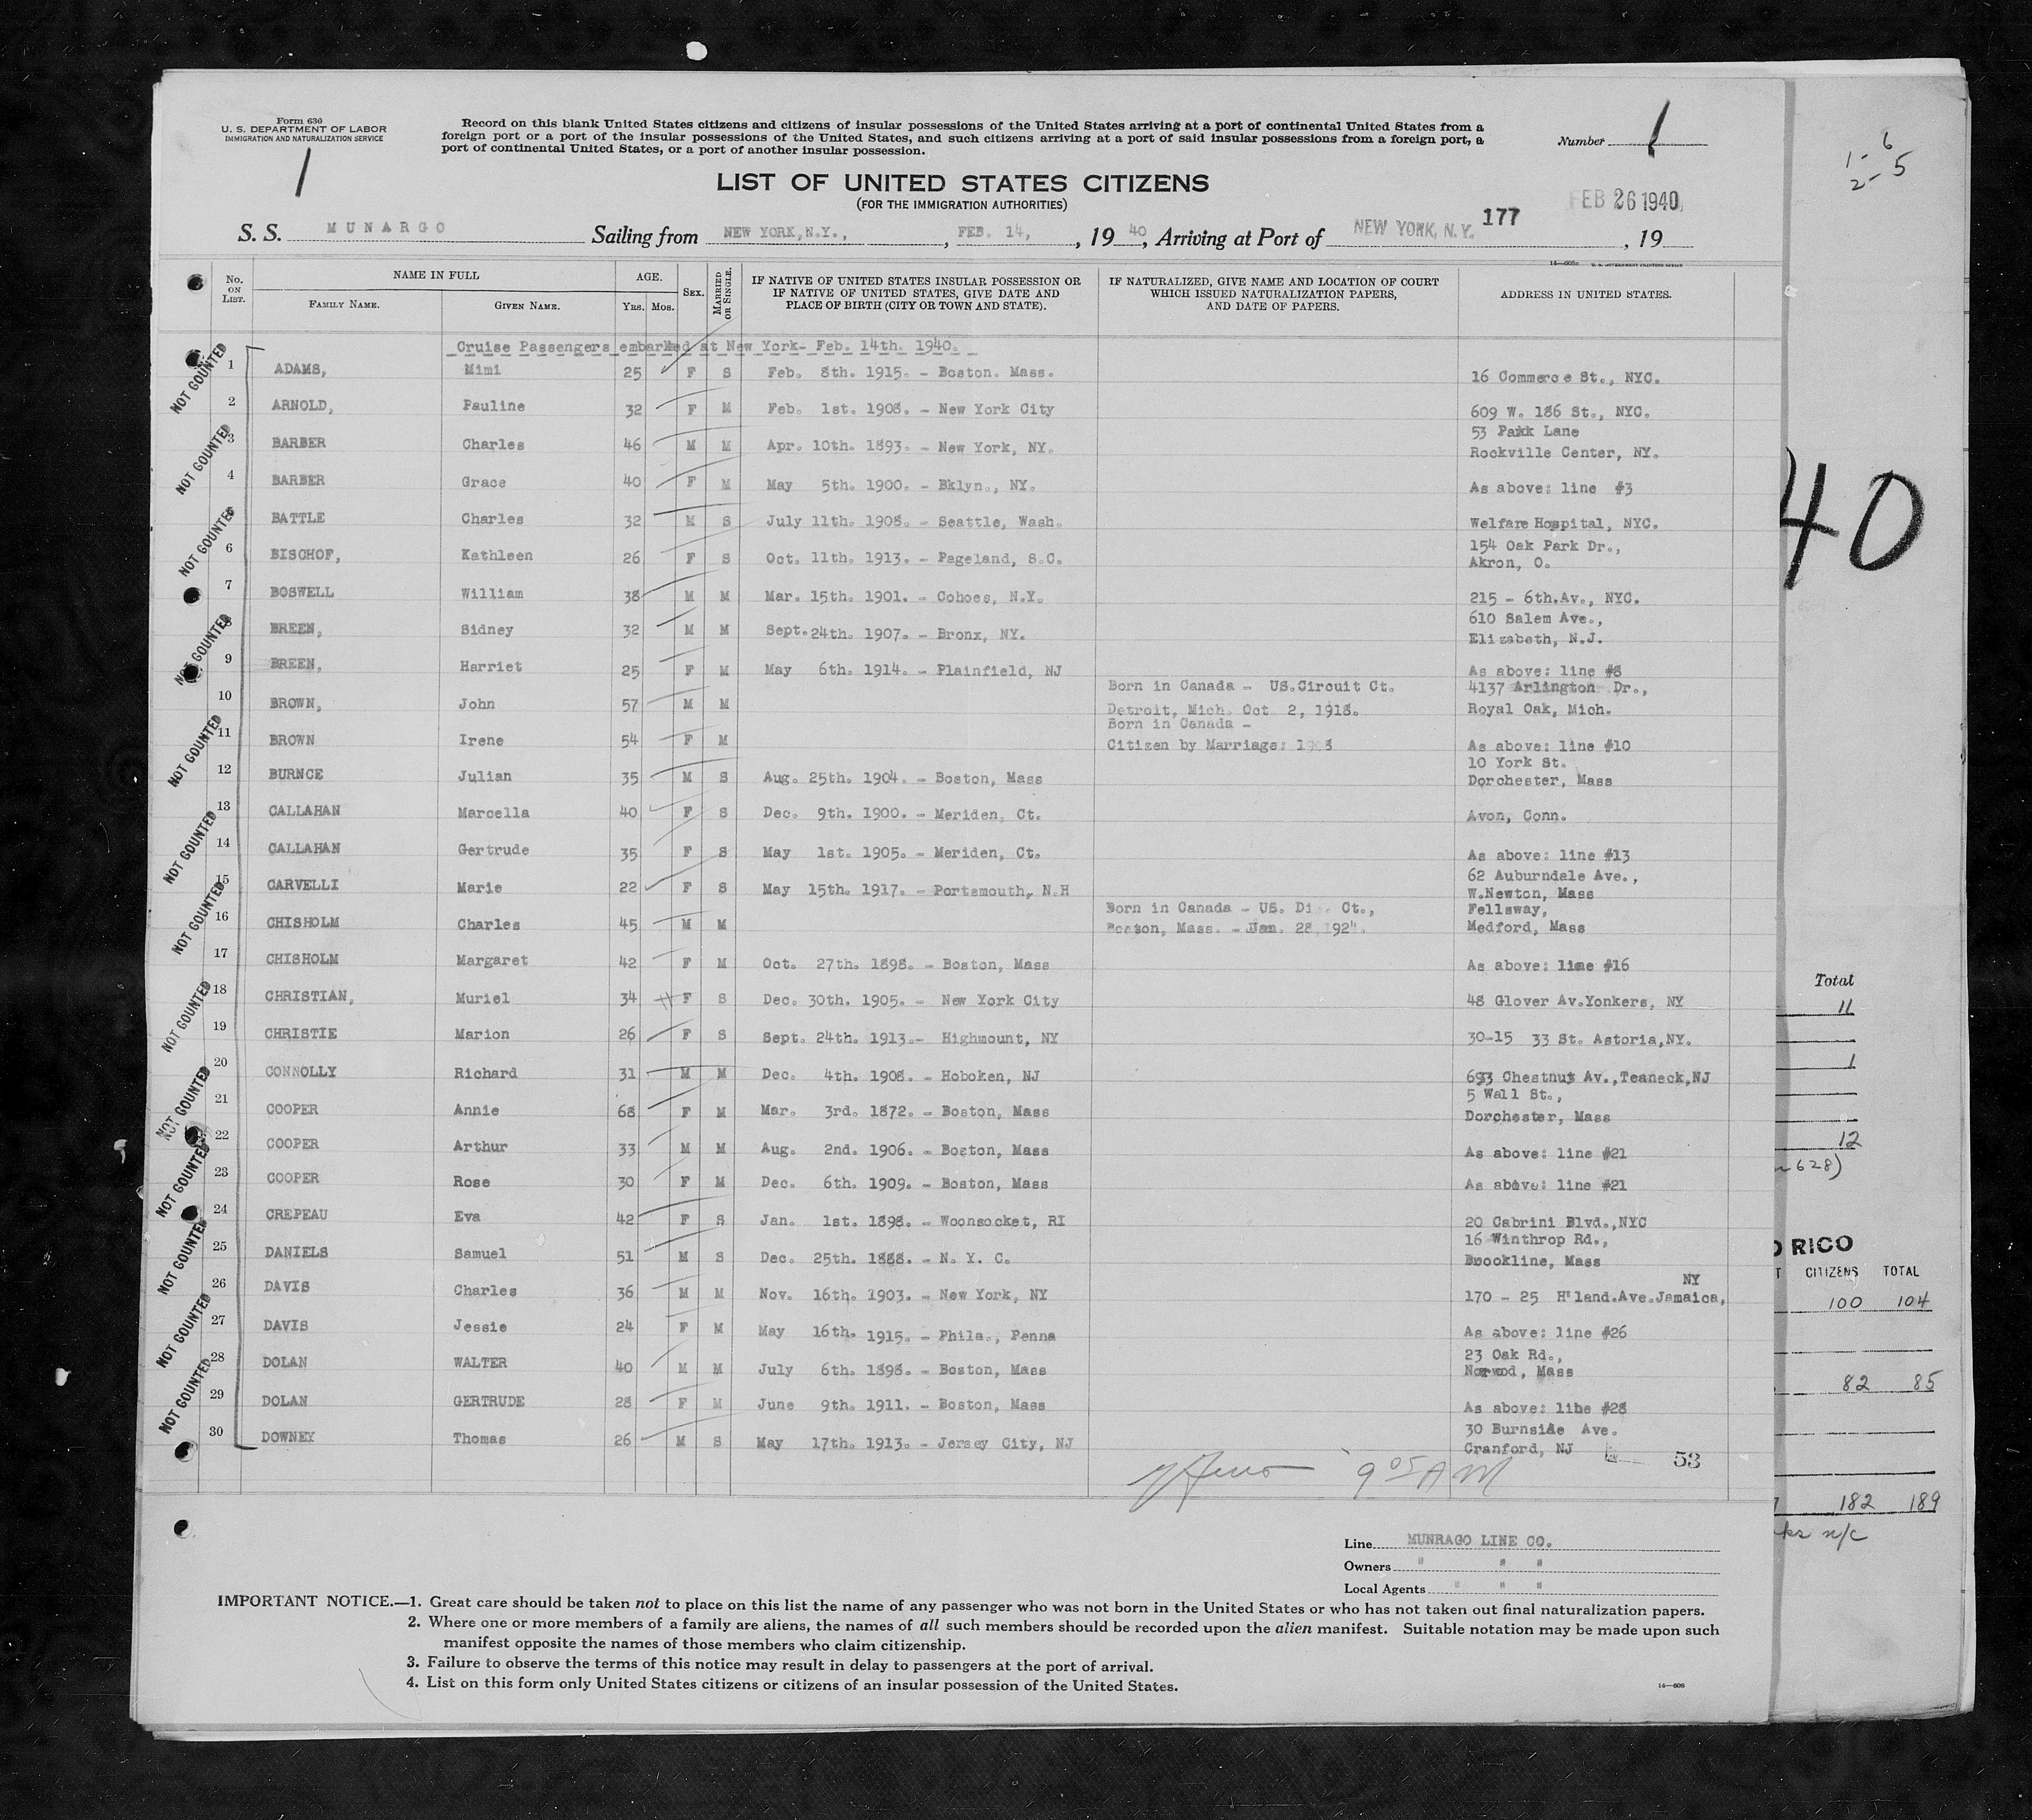 Form 630
U. S. DEPARTMENT OF LABOR
IMMIGRATION AND NATURALIZATION SERVICE
1
Record on this blank United States citizens and citizens of insular possessions of the United States arriving at a port of continental United States from a
foreign port or a port of the insular possessions of the United States, and such citizens arriving at a port of said insular possessions from a foreign port, a
port of continental United States, or a port of another insular possession.
Number 1
1- 6
2- 5
LIST OF UNITED STATES CITIZENS
(FOR THE IMMIGRATION AUTHORITIES)
FEB 26 1940
177
S. S. MUNARGO Sailing from NEW YORK, N.Y., FEB. 14, , 19 40, Arriving at Port of NEW YORK, N.Y. , 19
No. ON LIST. NAME IN FULL FAMILY NAME. GIVEN NAME. AGE. Yrs. Mos. SEX. MARRIED OR SINGLE. IF NATIVE OF UNITED STATES INSULAR POSSESSION OR IF NATIVE OF UNITED STATES, GIVE DATE AND PLACE OF BIRTH (CITY OR TOWN AND STATE). IF NATURALIZED, GIVE NAME AND LOCATION OF COURT WHICH ISSUED NATURALIZATION PAPERS, AND DATE OF PAPERS. ADDRESS IN UNITED STATES.
Cruise Passengers embarked at New York- Feb. 14th. 1940.
NOT COUNTED
1 ADAMS, Mimi 25 F S Feb. 8th. 1915. - Boston. Mass. 16 Commerce St., NYC.
2 ARNOLD, Pauline 32 F M Feb. 1st. 1908. - New York City 609 W. 186 St., NYC.
3 BARBER Charles 46 M M Apr. 10th. 1893. - New York, NY. 53 Pakk Lane
Rockville Center, NY.
4 BARBER Grace 40 F M May 5th. 1900. - Bklyn., NY. As above: line #3
5 BATTLE Charles 32 M S July 11th. 1908. - Seattle, Wash. Welfare Hospital, NYC.
6 BISCHOF, Kathleen 26 F S Oct. 11th. 1913. - Pageland, S.C. 154 Oak Park Dr.,
Akron, O.
7 BOSWELL William 38 M M Mar. 15th. 1901. - Cohoes, N.Y. 215 - 6th.Av., NYC.
8 BREEN, Sidney 32 M M Sept. 24th. 1907. - Bronx, NY. 610 Salem Ave.,
Elizabeth, N.J.
9 BREEN, Harriet 25 F M May 6th. 1914. - Plainfield, NJ As above: line #8
10 BROWN, John 57 M M Born in Canada - US.Circuit Ct. 4137 Arlington Dr.,
Detroit, Mich. Oct 2, 1918. Royal Oak, Mich.
11 BROWN Irene 54 F M Born in Canada -
Citizen by Marriage: As above: line #10
12 BURNCE Julian 35 M S Aug. 25th. 1904. - Boston, Mass 10 York St.
Dorchester, Mass
13 CALLAHAN Marcella 40 F S Dec. 9th. 1900. - Meriden, Ct. Avon, Conn.
14 CALLAHAN Gertrude 35 F S May 1st. 1905. - Meriden, Ct. As above: line #13
15 CARVELLI Marie 22 F S May 15th. 1917. - Portsmouth, N.H 62 Auburndale Ave.,
W.Newton, Mass
16 CHISHOLM Charles 45 M M Born in Canada - US. Ct., Fellsway,
Boston, Mass. - Jan. 28, 1924. Medford, Mass
17 CHISHOLM Margaret 42 F M Oct. 27th. 1898. - Boston, Mass As above: line #16
18 CHRISTIAN, Muriel 34 F S Dec. 30th. 1905. - New York City 48 Glover Av.Yonkers, NY
19 CHRISTIE Marion 26 F S Sept. 24th. 1913.- Highmount, NY 30-15 33 St. Astoria,NY.
20 CONNOLLY Richard 31 M M Dec. 4th. 1908. - Hoboken, NJ 693 Chestnut Av.,Teaneck,NJ
21 COOPER Annie 68 F M Mar. 3rd. 1872. - Boston, Mass 5 Wall St.,
Dorchester, Mass
22 COOPER Arthur 33 M M Aug. 2nd. 1906. - Boston, Mass As above: line #21
23 COOPER Rose 30 F M Dec. 6th. 1909. - Boston, Mass As above: line #21
24 CREPEAU Eva 42 F S Jan. 1st. 1898. - Woonsocket, RI 20 Cabrini Blvd.,NYC
25 DANIELS Samuel 51 M S Dec. 25th. 1888. - N. Y. C. 16 Winthrop Rd.,
Brookline, Mass
26 DAVIS Charles 36 M M Nov. 16th. 1903. - New York, NY 170 - 25 H'land.Ave.Jamaica, NY
27 DAVIS Jessie 24 F M May 16th. 1915. - Phila., Penna As above: line #26
28 DOLAN WALTER 40 M M July 6th. 1898. - Boston, Mass 23 Oak Rd.,
Norwod, Mass
29 DOLAN GERTRUDE 28 F M June 9th. 1911. - Boston, Mass As above: lihe #28
30 DOWNEY Thomas 26 M S May 17th. 1913. - Jersey City, NJ 30 Burnside Ave.
Cranford, NJ
53
9 05 A M
Line MUNRAGO LINE CO.
Owners " " "
Local Agents " " "
IMPORTANT NOTICE.—1. Great care should be taken not to place on this list the name of any passenger who was not born in the United States or who has not taken out final naturalization papers.
2. Where one or more members of a family are aliens, the names of all such members should be recorded upon the alien manifest. Suitable notation may be made upon such
manifest opposite the names of those members who claim citizenship.
3. Failure to observe the terms of this notice may result in delay to passengers at the port of arrival.
4. List on this form only United States citizens or citizens of an insular possession of the United States.
14—608
40
Total
11
1
12
628)
RICO
CITIZENS TOTAL
100 104
82 85
182 189
n/c